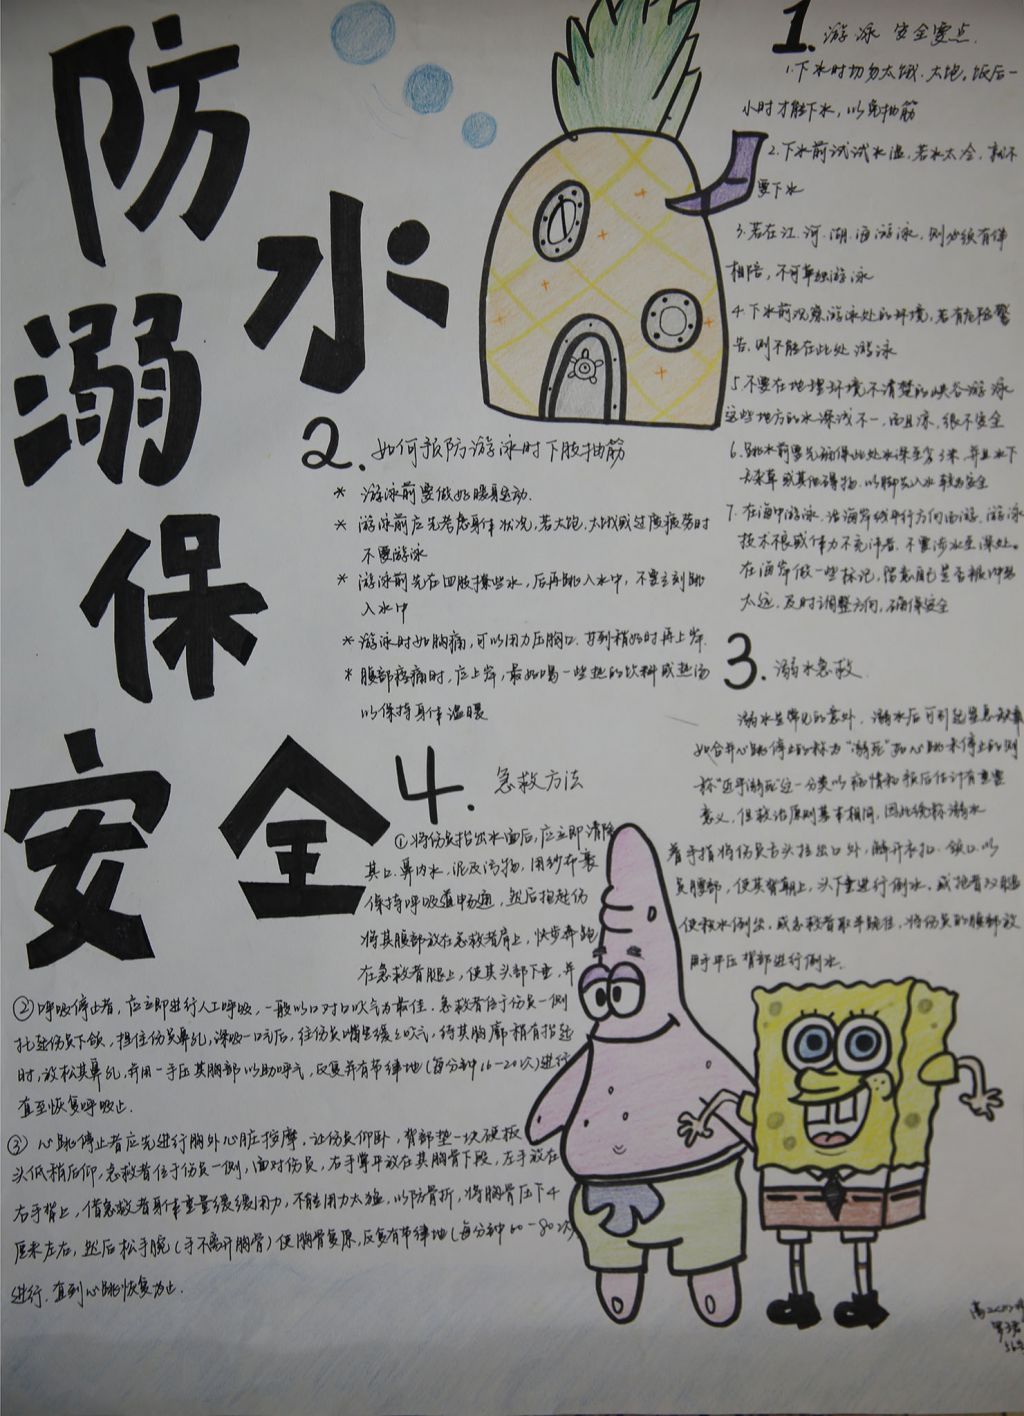 防
溺水
保
安全
1. 游泳安全要点
1.下水时切勿太饿、太饱。饭后一
小时才能下水，以免抽筋
2.下水前试试水温，若水太冷，就不
要下水
3.若在江、河、湖、海游泳，则必须有伴
相陪，不可单独游泳
4.下水前观察游泳处的环境，若有危险警
告，则不能在此处游泳
5.不要在地理环境不清楚的峡谷游泳
这些地方的水深浅不一，而且凉，很不安全
6.跳水前要先确保此处水深至少3米，并且水下
无杂草或其他障物，以脚先入水较为安全
7.在海中游泳，沿海岸线平行方向而游，游泳
技术不良或体力不充沛者，不要涉水至深处。
在海岸做一些标记，留意自己是否被冲出
太远，及时调整方向，确保安全
2. 如何预防游泳时下肢抽筋
* 游泳前要做好暖身运动.
* 游泳前应先考虑身体状况，若太饱、太饿或过度疲劳时
不要游泳
* 游泳前先在四肢撩些水，后再跳入水中，不要立刻跳
入水中
* 游泳时如胸痛，可以用力压胸口，等到稍好时再上岸.
* 腹部疼痛时，应上岸，最好喝一些热的饮料或热汤
以保持身体温暖
3. 溺水急救
溺水是常见的意外，溺水后可引起窒息
如合并心跳停止的称为“溺死”如心跳未停止的则
称“近乎溺死”这一分类以病情和预后估计有重要
意义，但救治原则基本相同，因此统称溺水
着手指将伤员舌头拉出口外，解开衣扣、领口，以
员腰部，使其背朝上，头下垂进行倒水，或抱着双腿
使积水倒出，或急救者取半跪位，将伤员的腹部放
用手平压背部进行倒水.
4. 急救方法
①将伤员抬出水面后，应立即清除
其口、鼻内水，泥及污物，用纱布裹
保持呼吸道畅通，然后抱起伤
将其腹部放在急救者肩上，快步奔跑
在急救者腿上，使其头部下垂，并
②呼吸停止者，应立即进行人工呼吸，一般以口对口吹气为最佳。急救者位于伤员一侧
托起伤员下颌，捏住伤员鼻孔，深吸一口气后，往伤员嘴里缓缓吹气，待其胸廓稍有抬起
时，放松其鼻孔，并用一手压其胸部以助呼气，反复并有节律地(每分钟16-20次)进行
直至恢复呼吸止.
③心跳停止者应先进行胸外心脏按摩，让伤员仰卧，背部垫一块硬板
头低稍后仰，急救者位于伤员一侧，面对伤员，右手掌平放在其胸骨下段，左手放在
右手背上，借急救者身体重量缓缓用力，不能用力太猛，以防骨折，将胸骨压下4
厘米左右，然后松手腕(手不离开胸骨)使胸骨复原，反复有节律地(每分钟60-80次
进行，直到心跳恢复为止.